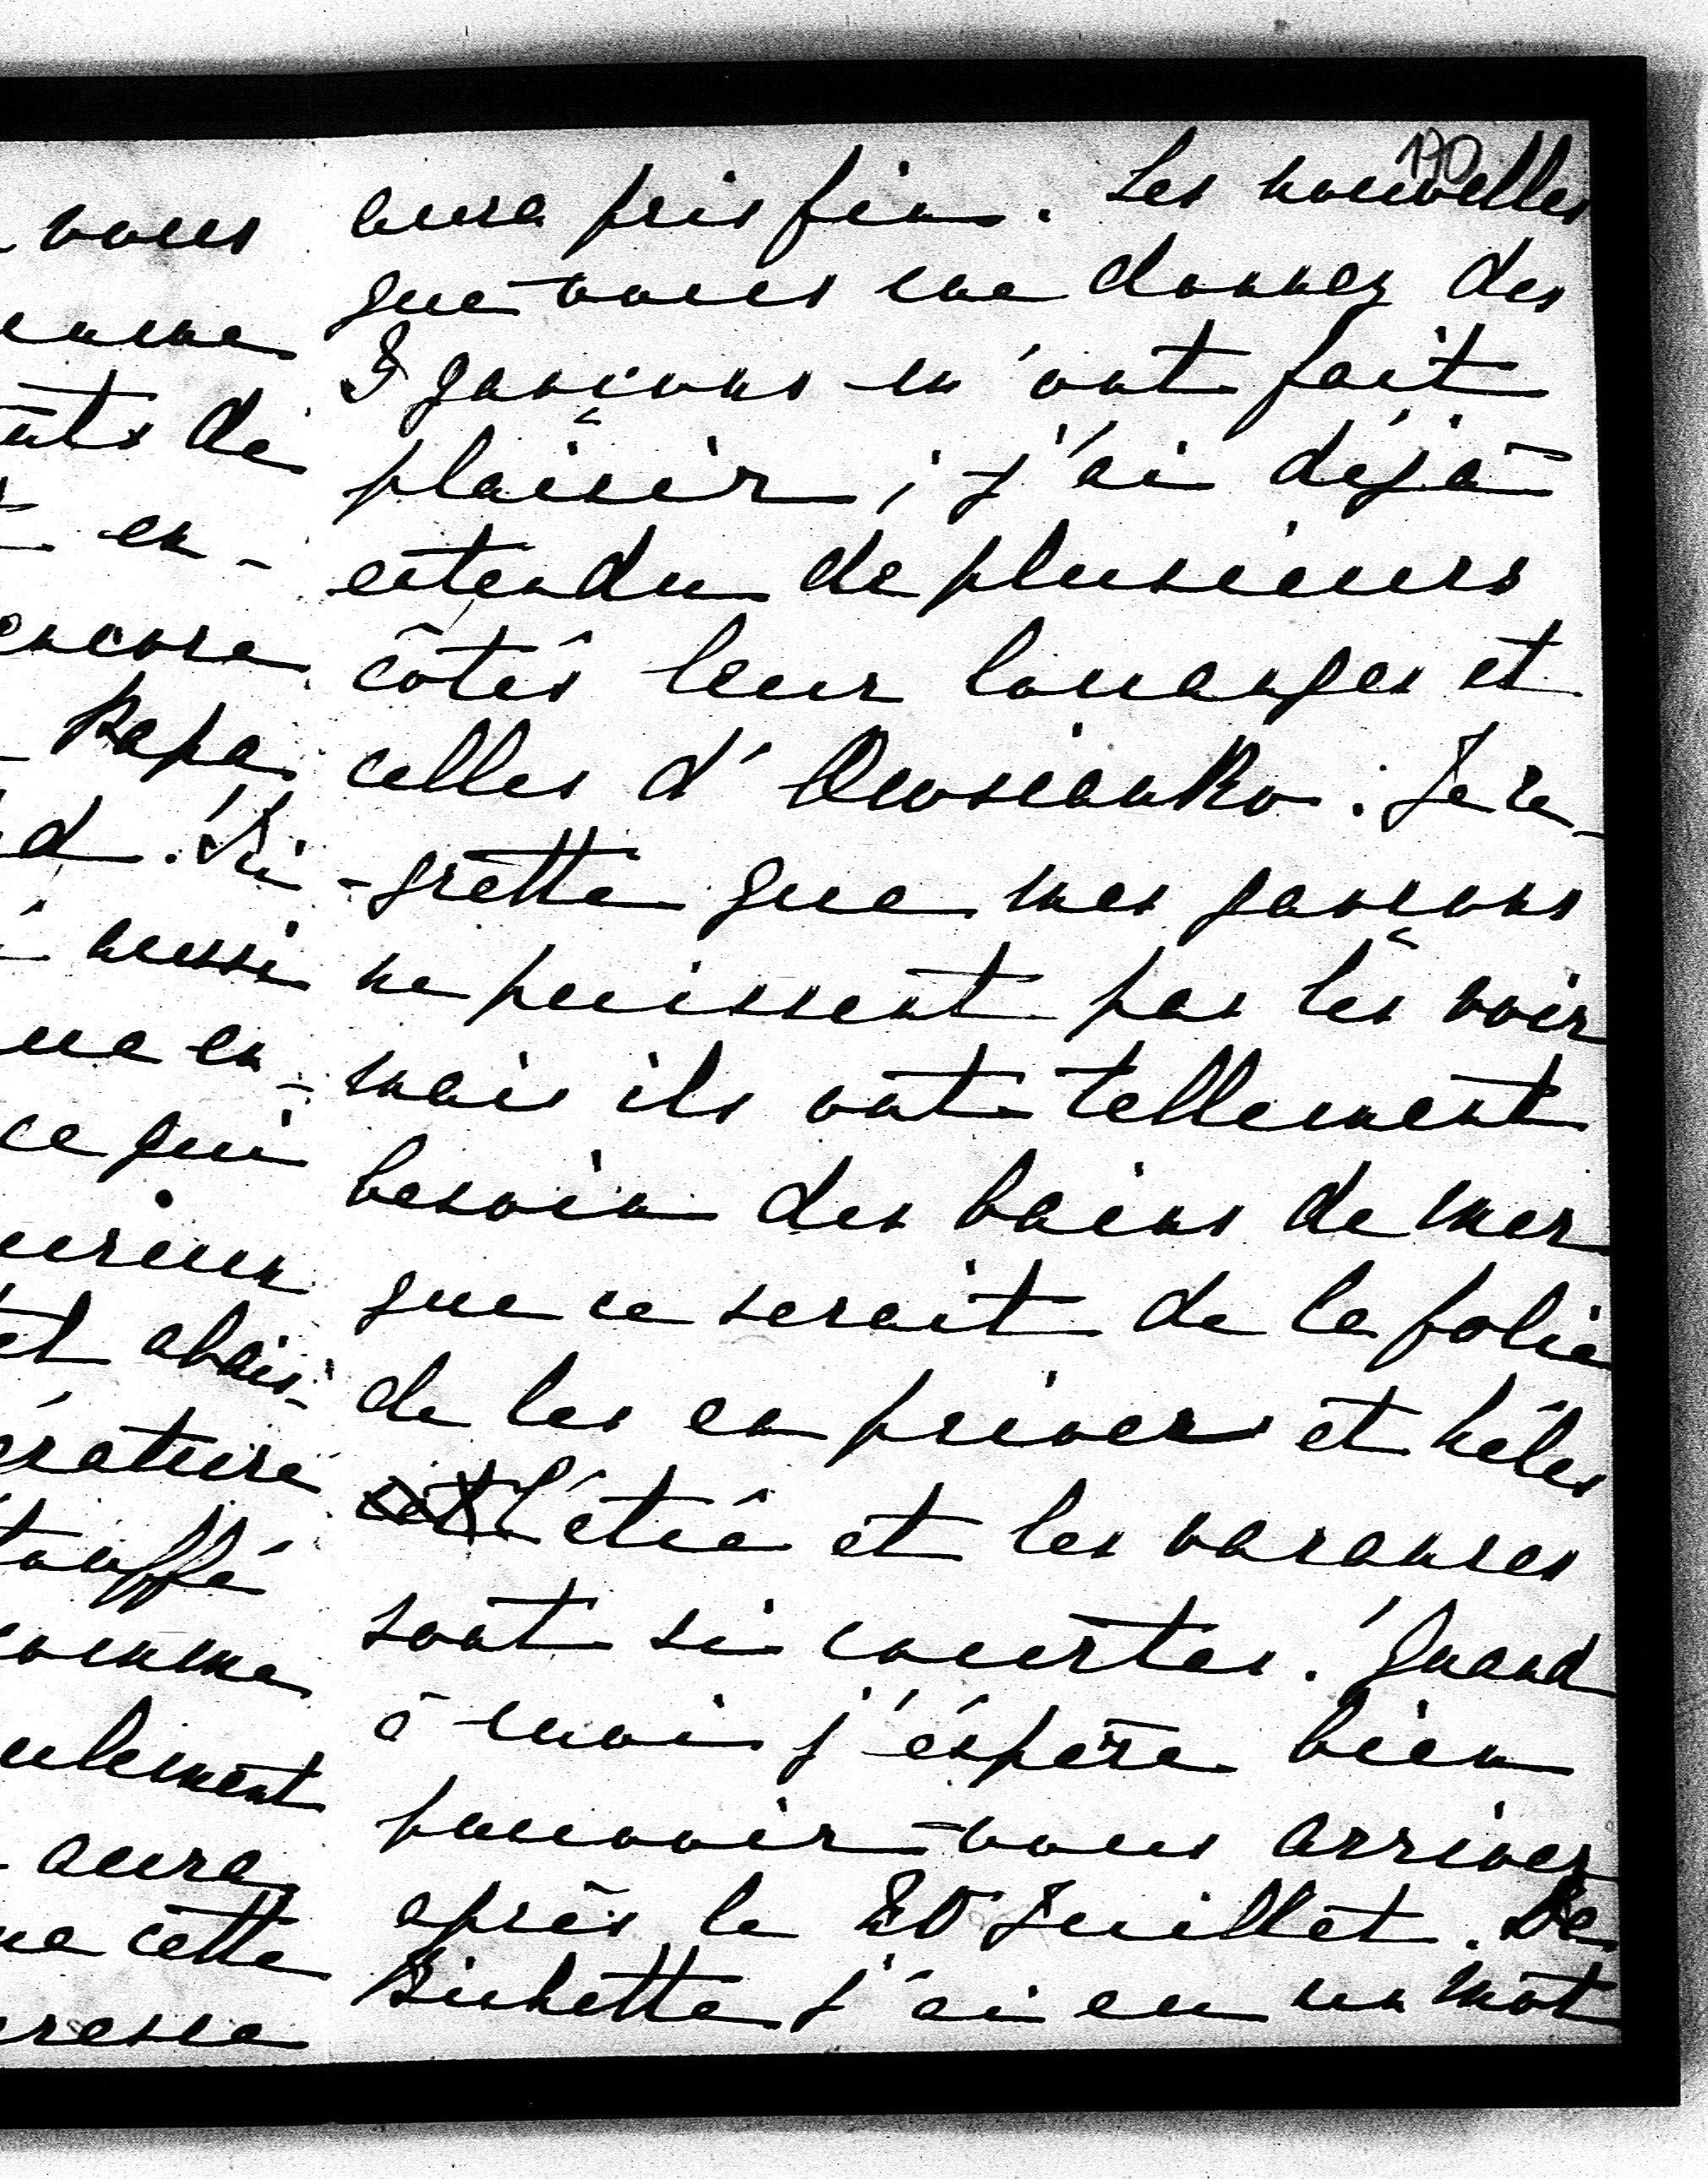 170
vous
ume
ats de
en-
encore
Papa
d. Si
aussi
ue en-
ce qui
urieux
et abais-
érature
touffé
comme
ulement
aura
ue cette
resse
aura pris fin. Les nouvelles
que vous me donnez des
garçons m'ont fait
plaisir, j'ai déjà
entendu de plusieurs
côtés leur louanges et
celles d'Owsianko. Je re-
-grette que mes garçons
ne puissent pas les voir
mais ils ont tellement
besoin des bains de mer
que ce serait de la folie
de les en priver et hélas
l'été et les vacances
sont si courtes. Quand
à moi j'éspère bien
pouvoir vous arriver
après le 20 Juillet. De
Bichette j'ai eu un mot